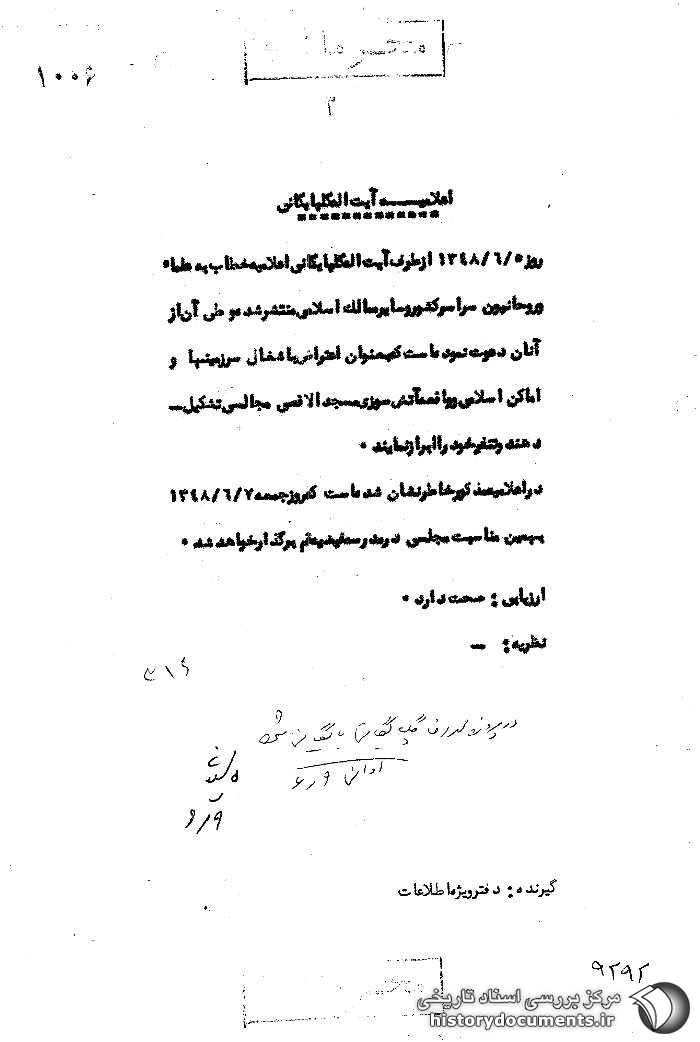 محرمانه
۱۰۰۶
۳
اعلامیـــــه آیت اله گلپایگانی
روز ۱۳۴۸/۶/۵ از طرف آیت اله گلپایگانی اعلامیه خطاب به علماء
وروحانیون سراسر کشور وسایر ممالک اسلامی منتشر شده و طی آن از
آنان دعوت نموده است که بعنوان اعتراض باشغال سرزمینها و
اماکن اسلامی وواقعه آتش سوزی مسجد الاقصی مجالسی تشکیل ـ
دهند وتنفر خود را ابراز نمایند .
در اعلامیه مذکور خاطرنشان شده است که روز جمعه ۱۳۴۸/۶/۷
بهمین مناسبت مجلسی در مدرسه فیضیه قم برگذار خواهد شد .
ارزیابی : صحت دارد .
نظریه : ــ
۳۱۶
در پرونده
۶
گیرنده : دفتر ویژه اطلاعات
۹۲۹۲
محرمانه
مرکز بررسی اسناد تاریخی
historydocuments.ir